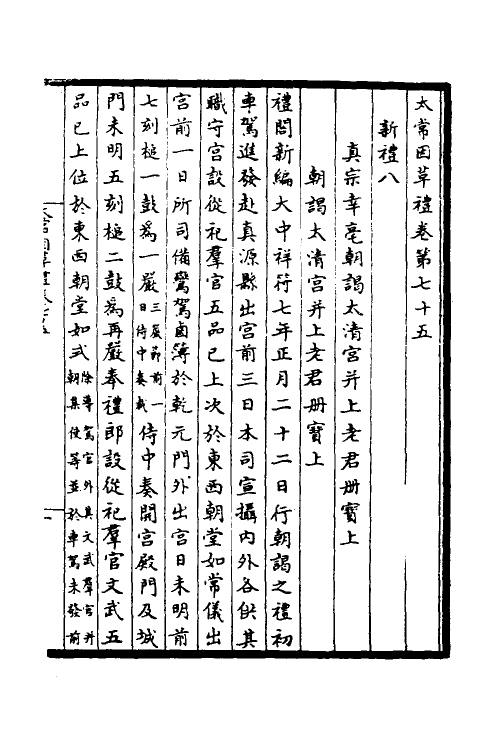 太常因革禮卷第七十五
新禮八
真宗幸亳朝謁太清宮并上老君冊寶上
朝謁太清宮并上老君冊寶上
禮閣新編大中祥符七年正月二十二日行朝謁之禮初
車駕進發赴真源縣出宮前三日本司宣攝内外各供其
職守宮設從祀羣官五品已上次於東西朝堂如常儀出
宮前一日所司備鸞駕鹵簿於乾元門外出宮日未明前
七刻槌一鼓為一嚴三嚴節前一日侍中奏裁侍中奏開宮殿門及城
門未明五刻槌二鼓為再嚴奉禮郎設從祀羣官文武五
品已上位於東西朝堂如式除導駕官外其文武羣官并朝集使等並於車駕未發前